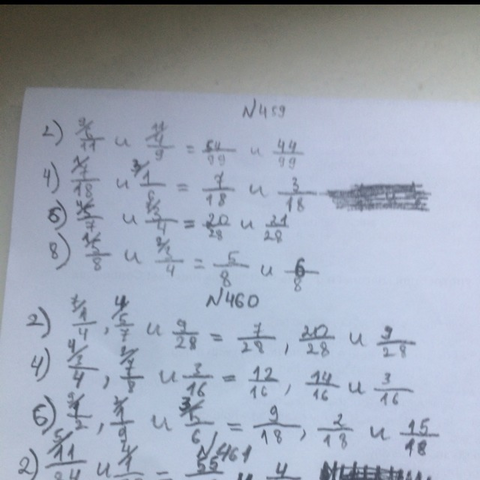 N459
2) 9/ 6/11 и 11/ 4/9 = 54/99 и 44/99
4) 1/ 7/18 и 3/ 1/6 = 7/18 и 3/18
6) 4/ 5/7 и 7/ 3/4 = 20/28 и 21/28
8) 1/ 5/8 и 2/ 3/4 = 5/8 и 6/8
N460
2) 7/ 1/4, 4/ 5/7 и 9/28 = 7/28, 20/28 и 9/28
4) 4/ 3/4, 2/ 7/8 и 3/16 = 12/16, 14/16 и 3/16
6) 9/ 1/2, 2/ 1/9 и 3/ 5/6 = 9/18, 2/18 и 15/18
N461
2) 5/ 11 и 4/ 1 = 55 и 4